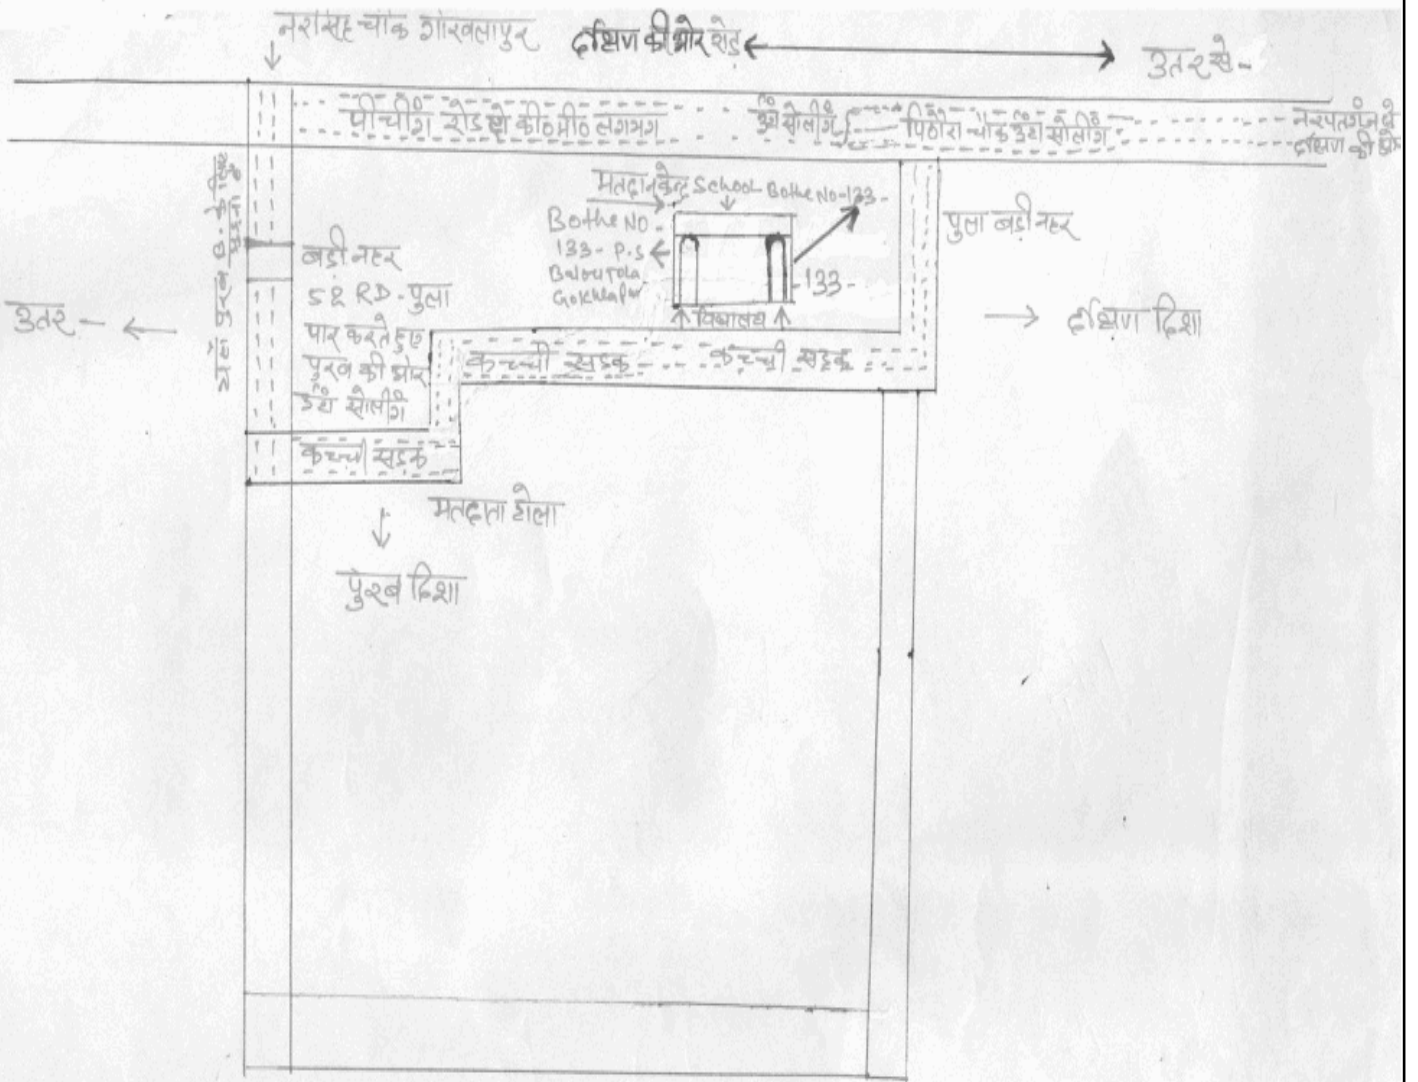 नरसिंह चौक गोखलापुर
दक्षिण की ओर रोड
उतर से -
पीचींग रोड दो की०मी० लगभग
ईंय सोलींग
पिठौरा चौक ईंय सोलींग
नरपतगंज से
दक्षिण की ओर
मतदान केन्द्र School Bothe No-133-
Bothe No.
133- P.S
Balourtola
Gokhlapur
-133-
विद्यालय
पुला बड़ी नहर
बड़ी नहर
52 RD- पुला
पार करते हुए
पुरब की ओर
ईंय सोलींग
उतर -
दक्षिण दिशा
कच्ची सड़क
कच्ची सड़क
कच्ची सड़क
मतदाता टोला
पुरब दिशा